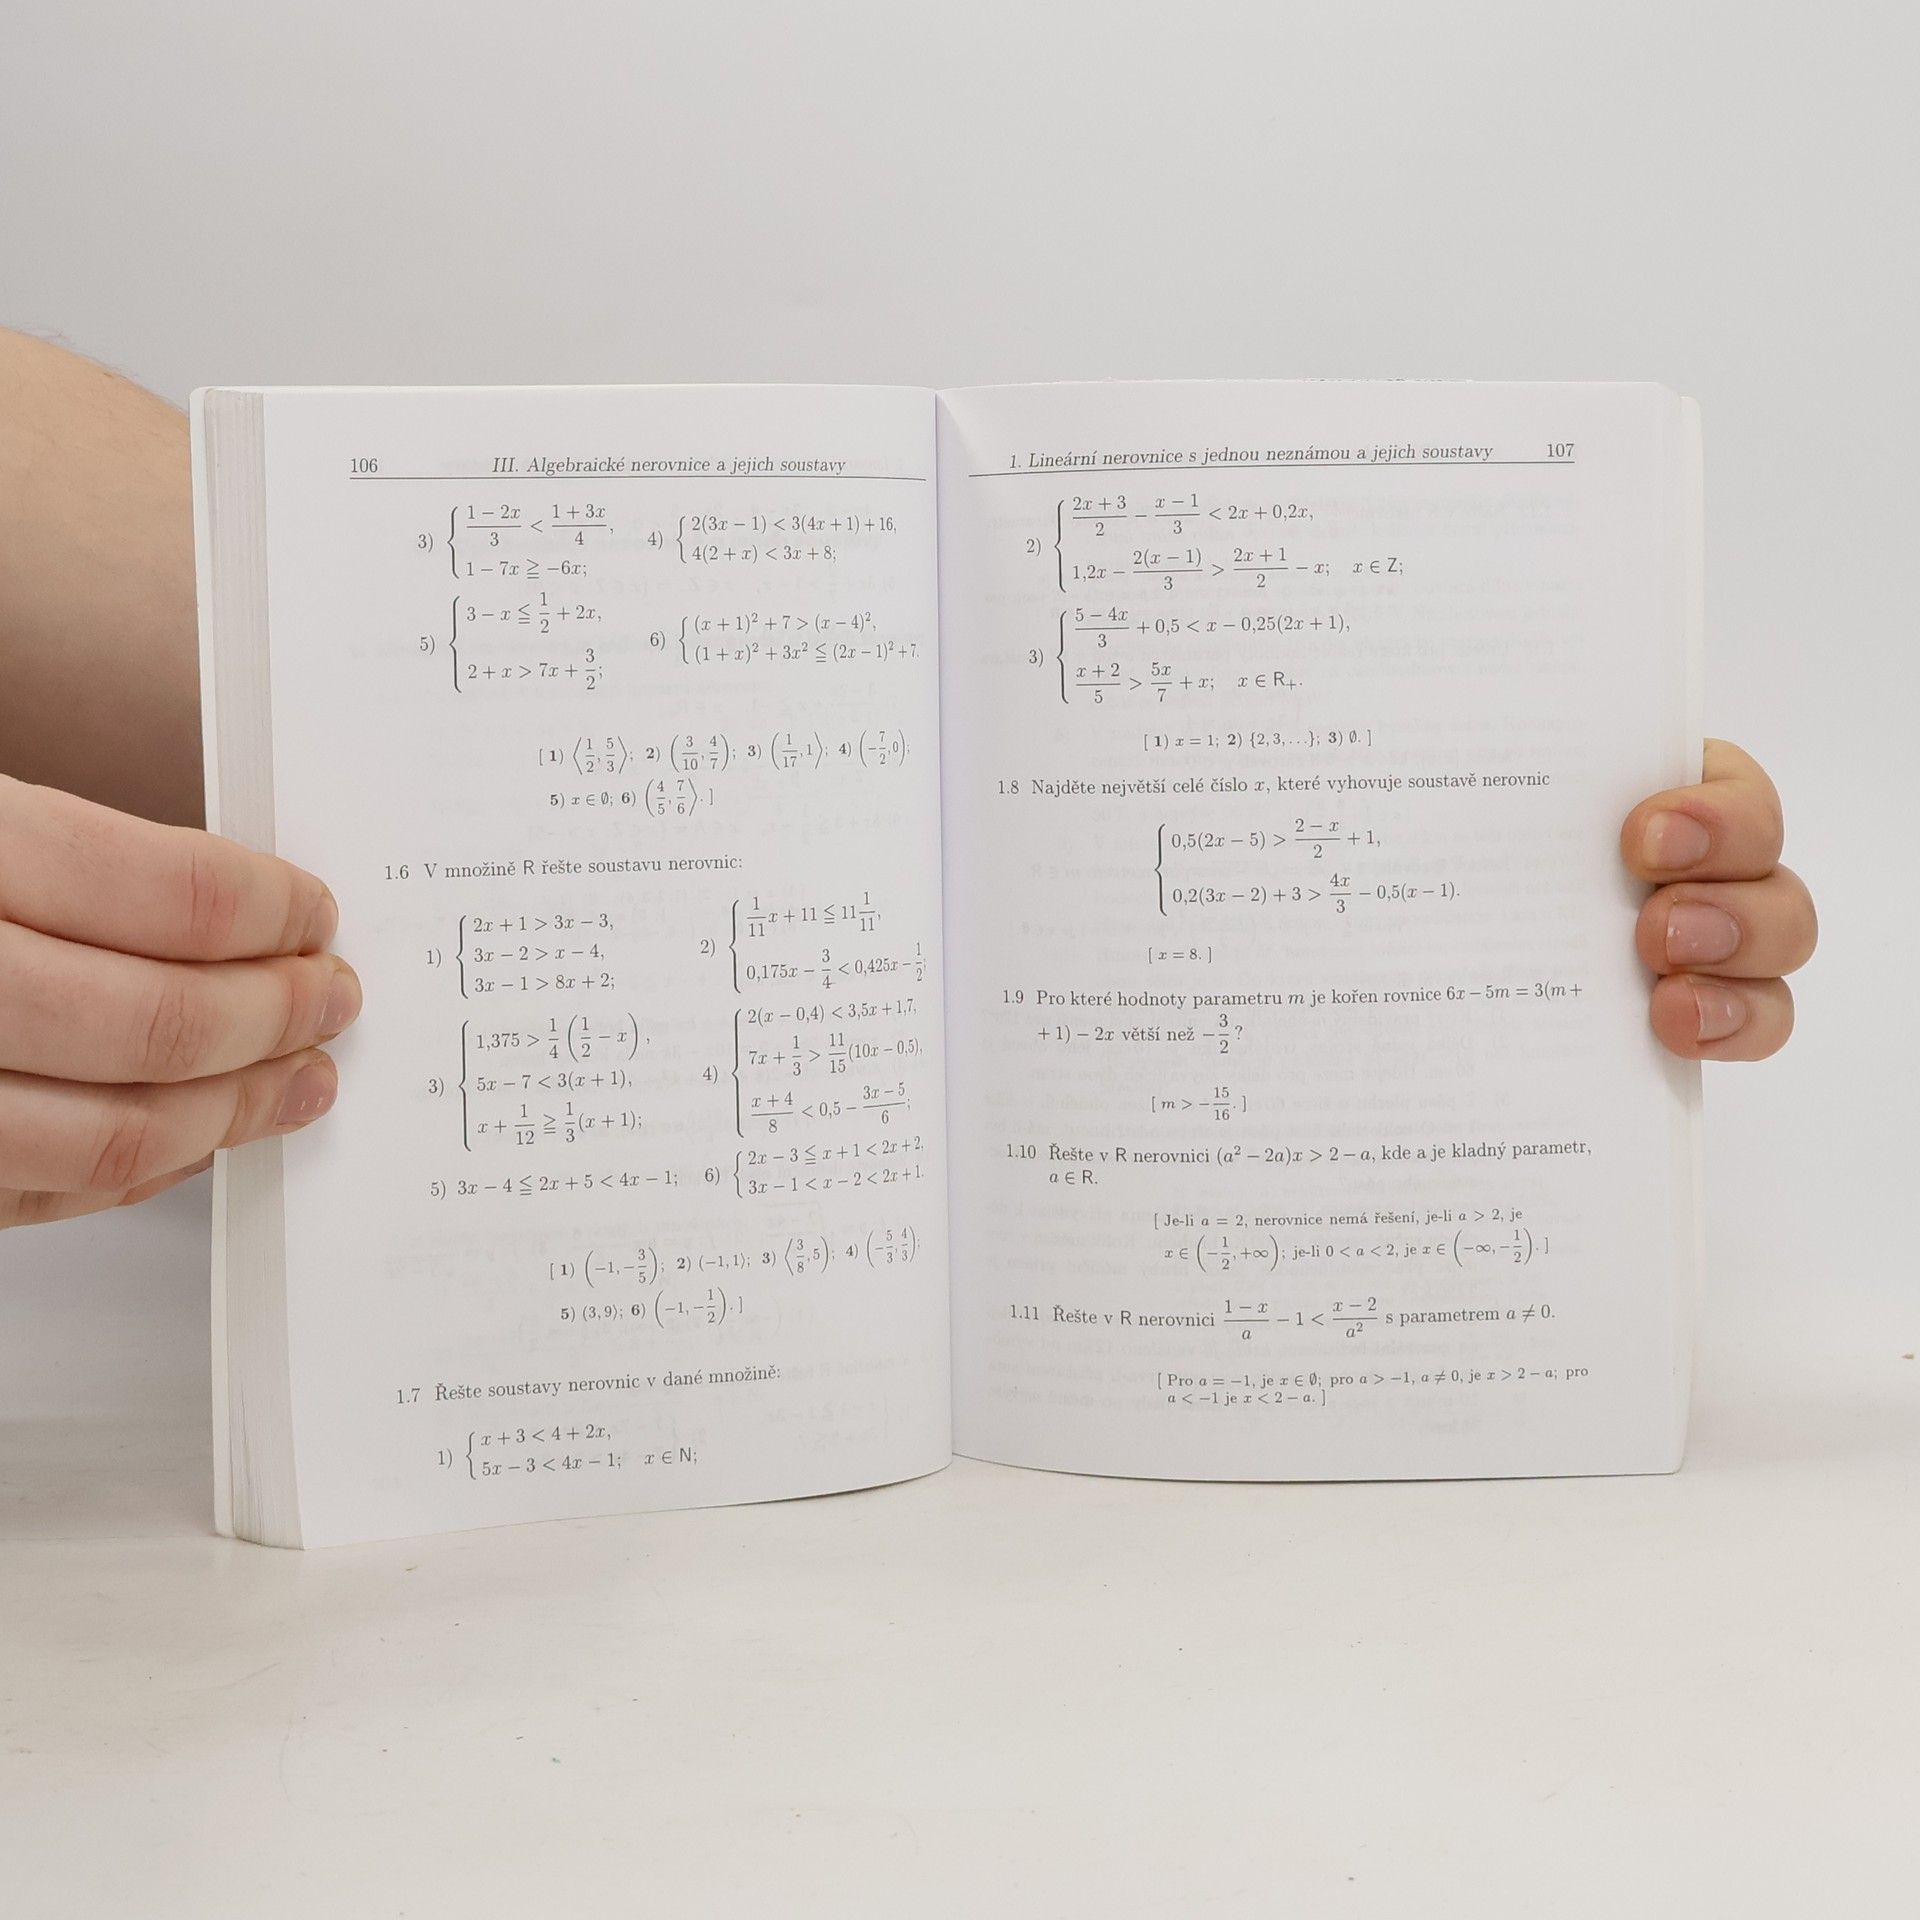 106 III. Algebraické nerovnice a jejich soustavy
3) { (1 − 2x)/3 < (1 + 3x)/4,
1 − 7x ≧ −6x;
4) { 2(3x − 1) < 3(4x + 1) + 16,
4(2 + x) < 3x + 8;
5) { 3 − x ≦ 1/2 + 2x,
2 + x > 7x + 3/2;
6) { (x + 1)² + 7 > (x − 4)²,
(1 + x)² + 3x² ≦ (2x − 1)² + 7.
[ 1) ⟨1/2, 5/3⟩; 2) (3/10, 4/7); 3) (1/17, 1⟩; 4) (−7/2, 0);
5) x ∈ ∅; 6) (4/5, 7/6⟩. ]
1.6 V množině R řešte soustavu nerovnic:
1) { 2x + 1 > 3x − 3,
3x − 2 > x − 4,
3x − 1 > 8x + 2;
2) { 1/11 x + 11 ≦ 11 1/11,
0,175x − 3/4 < 0,425x − 1/2;
3) { 1,375 > 1/4 (1/2 − x),
5x − 7 < 3(x + 1),
x + 1/12 ≧ 1/3 (x + 1);
4) { 2(x − 0,4) < 3,5x + 1,7,
7x + 1/3 > 11/15 (10x − 0,5),
(x + 4)/8 < 0,5 − (3x − 5)/6;
5) 3x − 4 ≦ 2x + 5 < 4x − 1;
6) { 2x − 3 ≦ x + 1 < 2x + 2,
3x − 1 < x − 2 < 2x + 1.
[ 1) (−1, −3/5); 2) (−1, 1⟩; 3) ⟨3/8, 5); 4) (−5/3, 4/3);
5) (3, 9⟩; 6) (−1, −1/2). ]
1.7 Řešte soustavy nerovnic v dané množině:
1) { x + 3 < 4 + 2x,
5x − 3 < 4x − 1; x ∈ N;
1. Lineární nerovnice s jednou neznámou a jejich soustavy 107
2) { (2x + 3)/2 − (x − 1)/3 < 2x + 0,2x,
1,2x − 2(x − 1)/3 > (2x + 1)/2 − x; x ∈ Z;
3) { (5 − 4x)/3 + 0,5 < x − 0,25(2x + 1),
(x + 2)/5 > 5x/7 + x; x ∈ R₊.
[ 1) x = 1; 2) {2, 3, …}; 3) ∅. ]
1.8 Najděte největší celé číslo x, které vyhovuje soustavě nerovnic
{ 0,5(2x − 5) > (2 − x)/2 + 1,
0,2(3x − 2) + 3 > 4x/3 − 0,5(x − 1).
[ x = 8. ]
1.9 Pro které hodnoty parametru m je kořen rovnice 6x − 5m = 3(m +
+ 1) − 2x větší než −3/2?
[ m > −15/16. ]
1.10 Řešte v R nerovnici (a² − 2a)x > 2 − a, kde a je kladný parametr,
a ∈ R.
[ Je-li a = 2, nerovnice nemá řešení, je-li a > 2, je
x ∈ (−1/2, +∞); je-li 0 < a < 2, je x ∈ (−∞, −1/2). ]
1.11 Řešte v R nerovnici (1 − x)/a − 1 < (x − 2)/a² s parametrem a ≠ 0.
[ Pro a = −1, je x ∈ ∅; pro a > −1, a ≠ 0, je x > 2 − a; pro
a < −1 je x < 2 − a. ]